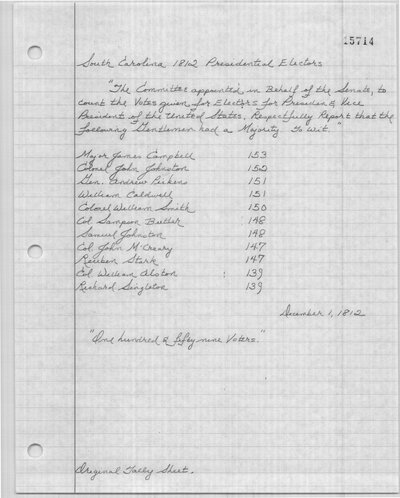 15714
South Carolina 1812 Presidential Electors
"The Committee appointed in Behalf of the Senate, to
count the Votes given for Electors for President & Vice
President of the United States, Respectfully Report that the
following Gentlemen had a Majority To Wit."
Major James Campbell 153
Colonel John Johnston 152
Gen. Andrew Pickens 151
William Caldwell 151
Colonel William Smith 150
Col Sampson Butler 148
Samuel Johnston 148
Col. John McCreary 147
Reuben Stark 147
Col William Alston 139
Richard Singleton 139
December 1, 1812
"One hundred & fifty-nine Voters."
Original Tally Sheet.